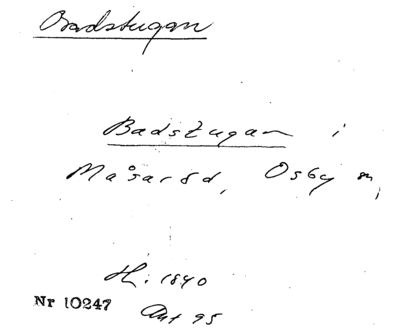 Badstugan
Badstugan i
Måsaröd, Osby sn,
H. 1840
Nr 10247
Ant 95